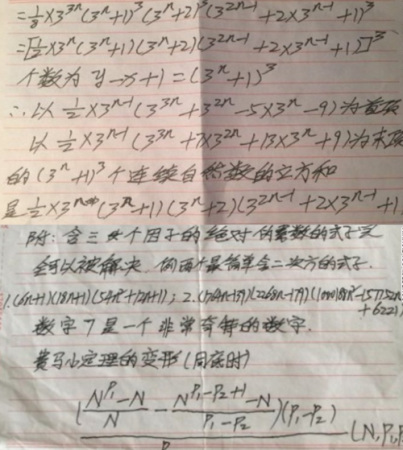 =1/8×3^{3n}(3^n+1)^3(3^n+2)^3(3^{2n-1}+2×3^{n-1}+1)^3
=[1/2×3^n(3^n+1)(3^n+2)(3^{2n-1}+2×3^{n-1}+1)]^3
个数为 y-x+1=(3^n+1)^3
∴以 1/2×3^{n-1}(3^{3n}+3^{2n}-5×3^n-9)为首项
以 1/2×3^{n-1}(3^{3n}+7×3^{2n}+13×3^n+9)为末项
的(3^n+1)^3个连续自然数的立方和
是1/2×3^n(3^n+1)(3^n+2)(3^{2n-1}+2×3^{n-1}+1
附:含三个因子的绝对伪素数的式子
可以被解决,例两个最简单含二次方的式子.
1.(6n+1)(18n+1)(54n²+12n+1);2.
数字7是一个非常奇特的数字.
费马小定理的变形(同底时)
(\frac{N^{P_1}-N}{N}-\frac{N^{P_1-P_2+1}-N}{P_1-P_2})(P_1-P_2)
(N,P_1,P